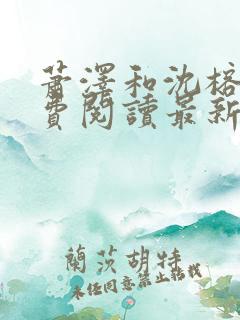 萧澤和沈榕
費閱讀最新
蘭茨胡特
未经同意禁止转载